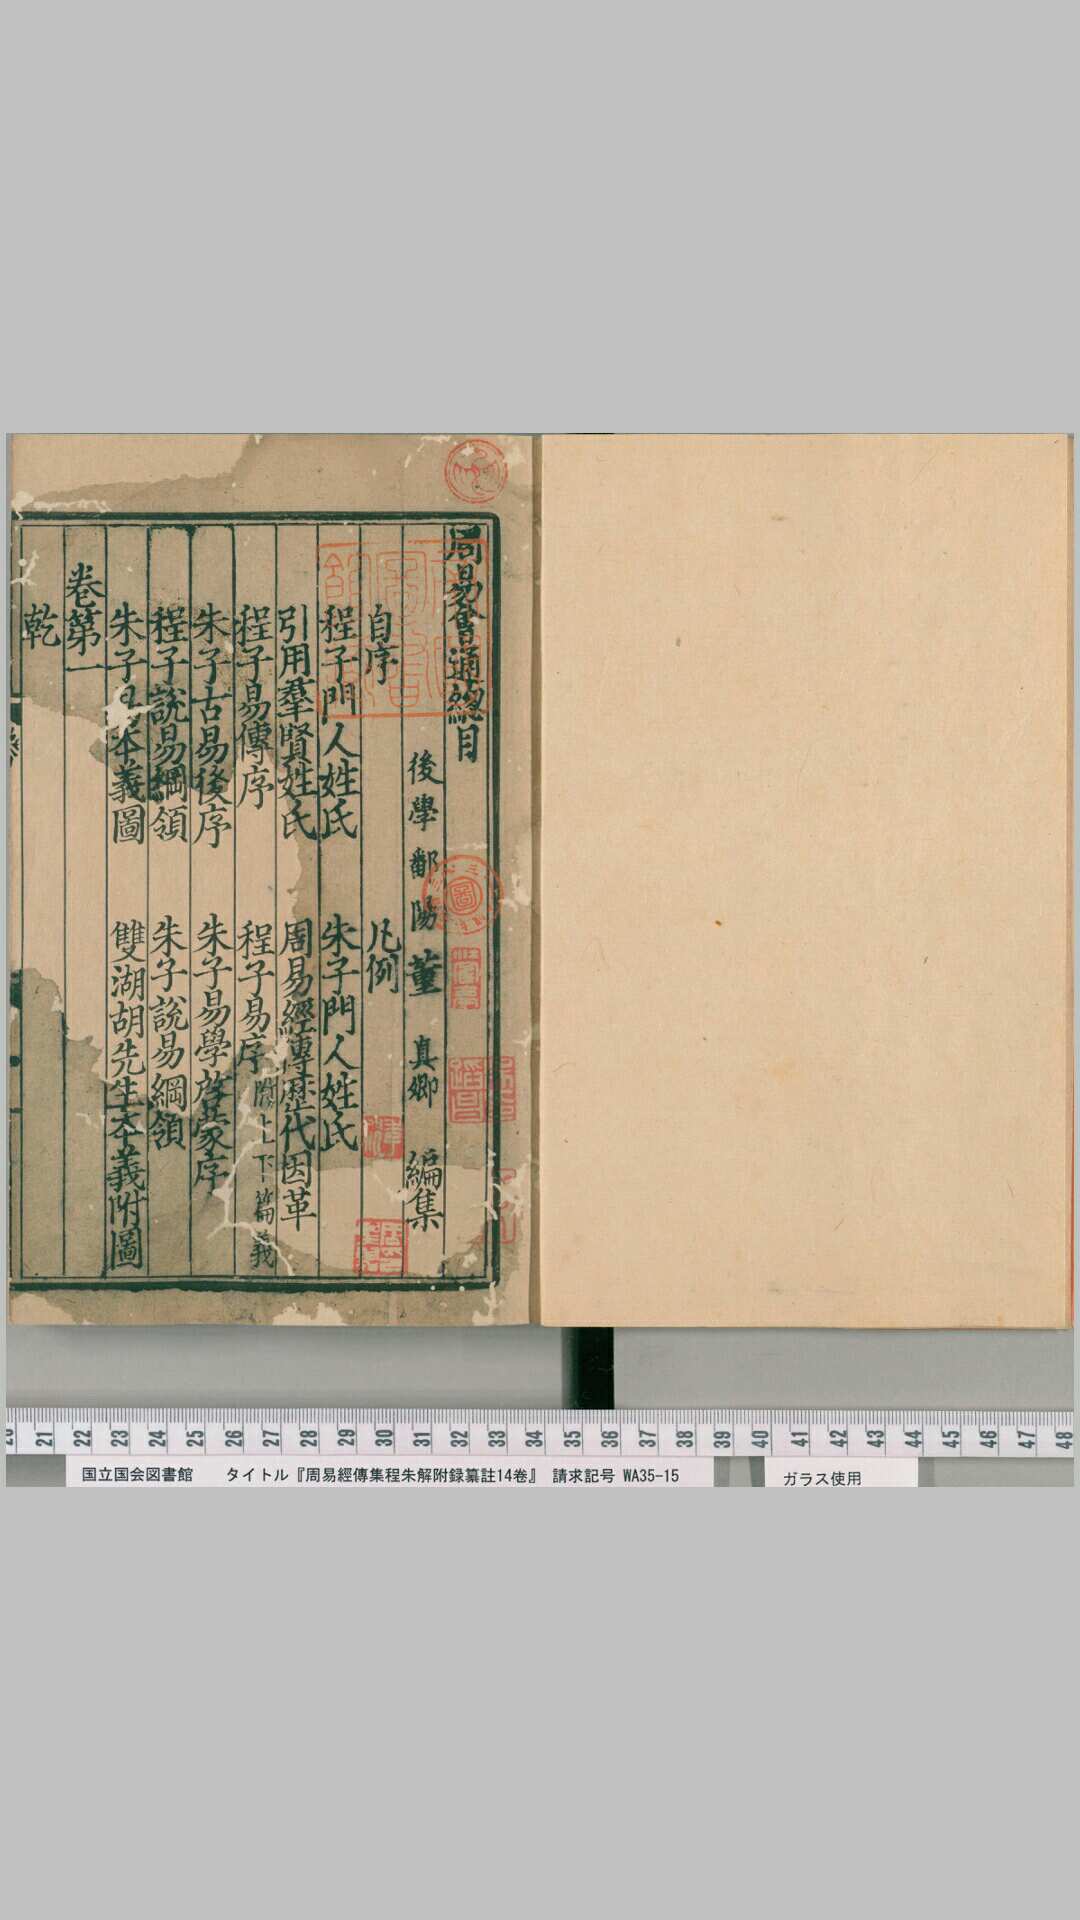 周易會通總目
後學鄱陽董 真卿 編集
自序 凡例
程子門人姓氏 朱子門人姓氏
引用羣賢姓氏 周易經傳歷代因革
程子易傳序 程子易序 附上下篇義
朱子古易後序 朱子易學啓蒙序
程子說易綱領 朱子說易綱領
朱子易本義圖 雙湖胡先生本義附圖
卷第一
乾
21 22 23 24 25 26 27 28 29 30 31 32 33 34 35 36 37 38 39 40 41 42 43 44 45 46 47 48
国立国会図書館 タイトル『周易經傳集程朱解附録纂註14卷』 請求記号 WA35-15
ガラス使用